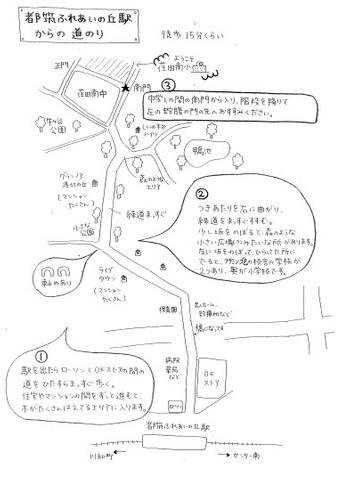 都筑ふれあいの丘駅
からの 道のり
徒歩 15分くらい
ようこそ
荏田南小
正門
荏田南中
南門
③
中学との間の南門から入り、階段を降りて
左の校門の先へおすすみください。
公園
鴨池
森のような
エリア
グランノア
港北の丘
(マンション
たくさん)
緑道まっすぐ
小さな
公園
②
つきあたりを右に曲がり、
緑道をまっすぐすすむ。
少し坂をのぼると、森のような
小さい広場みたいな所があります。
左に坂をのぼって、ひらけた所に
でると、校舎の学校が
2つあり、奥が小学校です。
車止めあり
ライブ
タウン
(マンション
たくさん)
保育園
老人ホーム
診療所など
橋になってます
①
駅を出たらローソンとOKストアの間の
道をひたすらまっすぐ歩く。
住宅やマンションの間をずっと進むと、
木がたくさんはえてるエリアに入ります。
病院
薬局
など
OK
ストア
ローソン
都筑ふれあいの丘駅
川和町
センター南